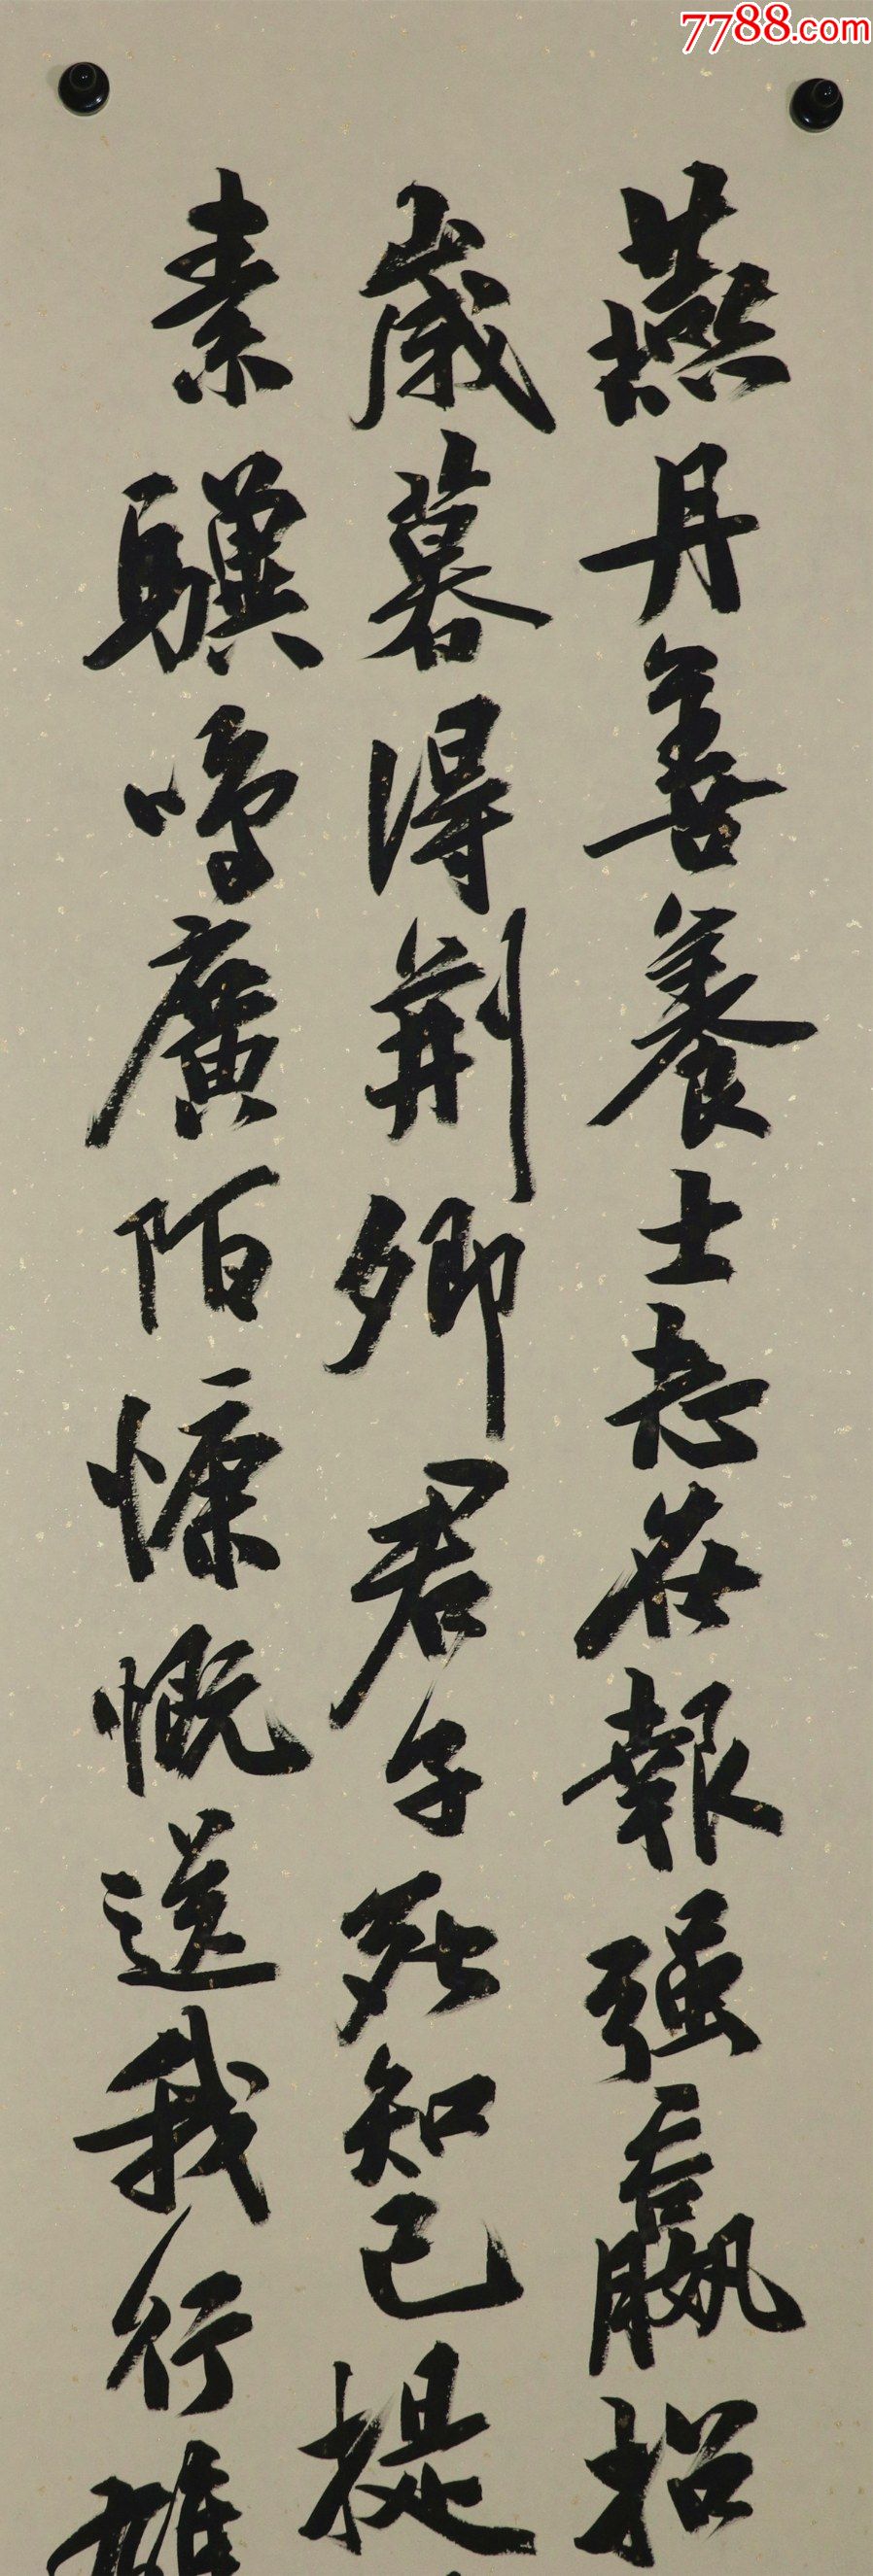 7788.com
燕丹善養士志在報强嬴招
歲暮得荆卿君子死知己提
素驥鳴廣陌慷慨送我行雄